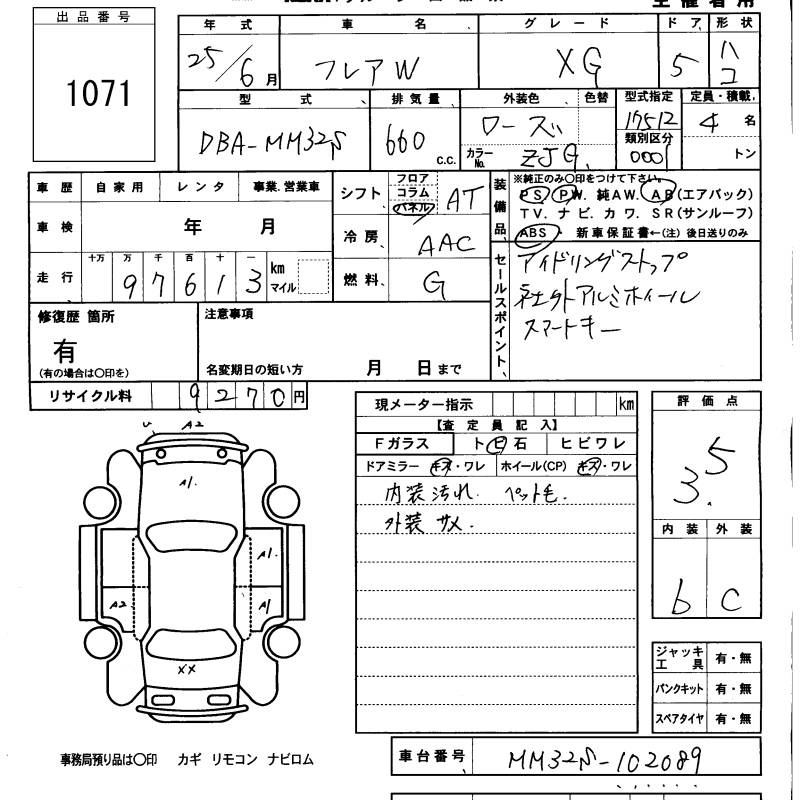 出品番号
1071
年式 車名 グレード ドア 形状
25/6月 フレアW XG 5 ハコ
型式 排気量 外装色 色替 型式指定 定員・積載
DBA-MM32S 660 c.c. ローズ 17512 4 名
類別区分
カラーNo. ZJG 0001 トン
車歴 自家用 レンタ 事業.営業車
車検 年 月
走行 十万 万 千 百 十 一
97613 km マイル
シフト フロア コラム パネル AT
冷房 AAC
燃料 G
装備品 ※純正のみ〇印をつけて下さい。
PS PW. 純AW. AB(エアバック)
TV. ナビ. カワ. SR(サンルーフ)
ABS・ 新車保証書←(注) 後日送りのみ
セールスポイント
アイドリングストップ
社外アルミホイール
スマートキー
修復歴 箇所
有
(有の場合は〇印を)
注意事項
名変期日の短い方 月 日まで
リサイクル料 9270円
現メーター指示 km
【査定員記入】
Fガラス トビ石 ヒビワレ
ドアミラー キズ・ワレ ホイール(CP) キズ・ワレ
内装汚れ. ペット毛.
外装サメ.
評価点
3.5
内装 外装
b C
ジャッキ工具 有・無
パンクキット 有・無
スペアタイヤ 有・無
U A2
A1.
A1.
A2 A1
XX
事務局預り品は〇印 カギ リモコン ナビロム
車台番号 MM32S-102089